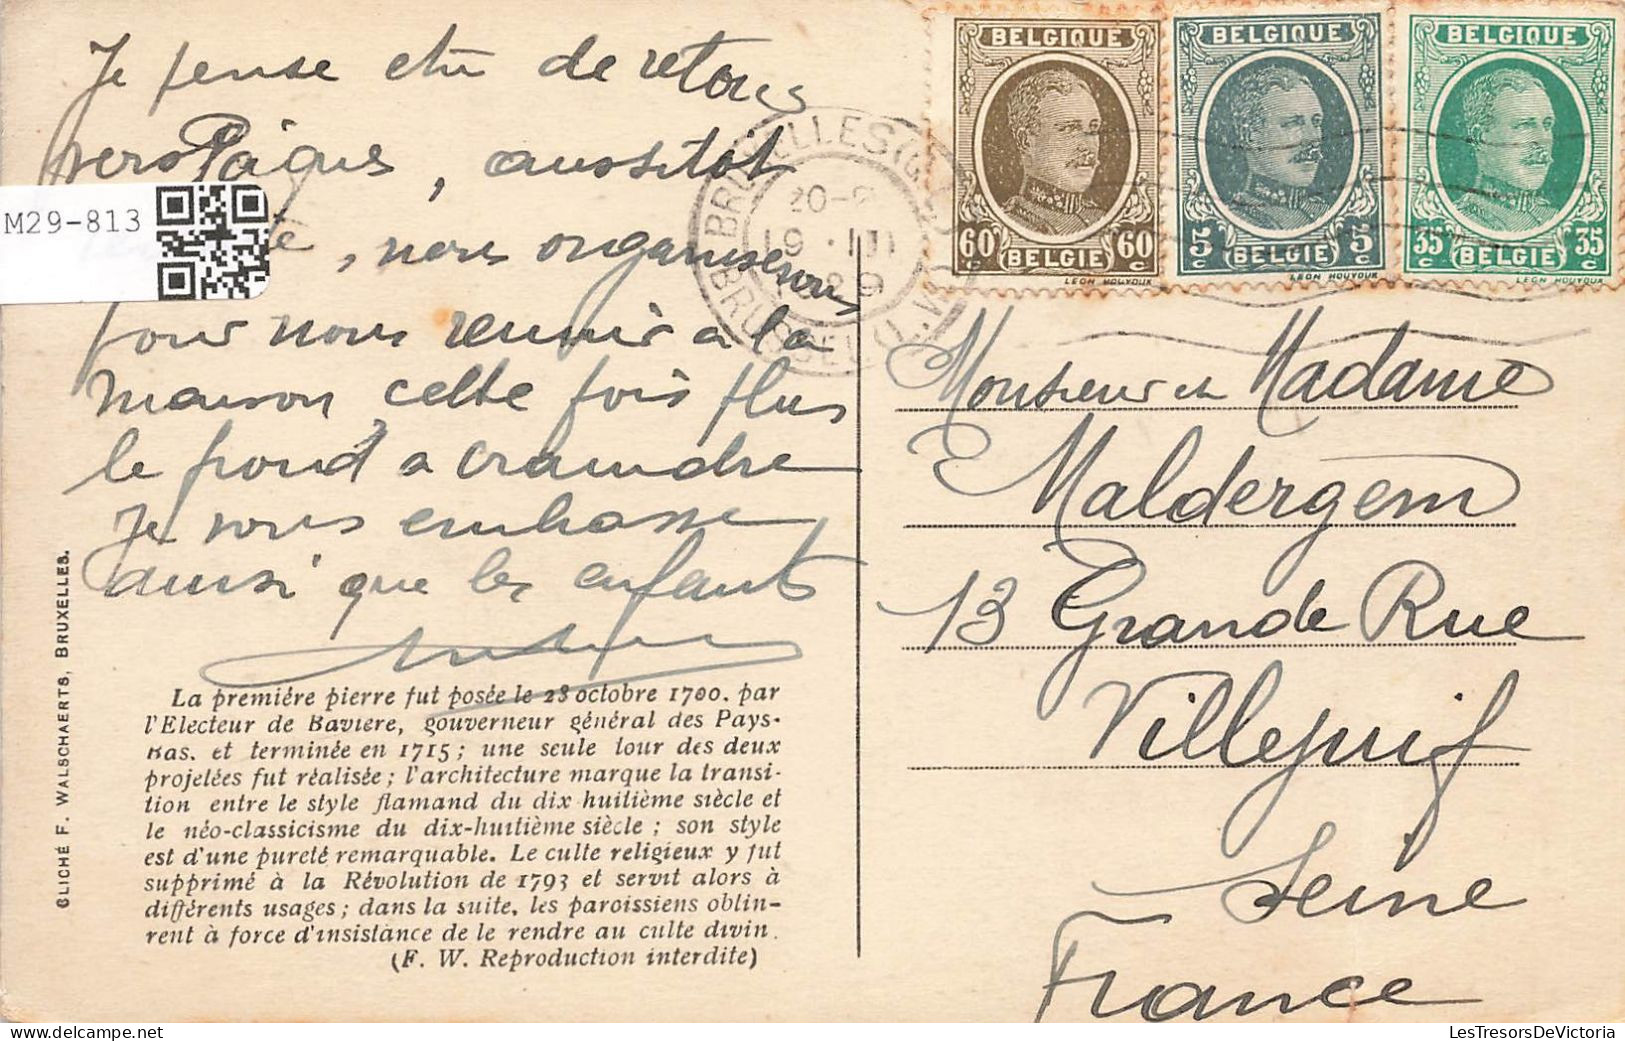 Je pense être de retour
vers Pâques, aussitôt
, nous organiserons
pour nous reunir à la
maison, cette fois plus
le froid a craindre
Je vous embrasse
ainsi que les enfants
M29-813
La première pierre fut posée le 28 octobre 1700. par
l'Electeur de Bavière, gouverneur général des Pays-
Bas. et terminée en 1715 ; une seule tour des deux
projelées fut réalisée ; l'architecture marque la transi-
tion entre le style flamand du dix huitième siècle et
le néo-classicisme du dix-huitième siècle ; son style
est d'une pureté remarquable. Le culte religieux y fut
supprimé à la Révolution de 1793 et servit alors à
différents usages ; dans la suite, les paroissiens oblin-
rent à force d'insistance de le rendre au culte divin.
(F. W. Reproduction interdite)
CLICHÉ F. WALSCHAERTS, BRUXELLES.
BELGIQUE
60 c 60 c
BELGIE
LEON HOUYOUX
BELGIQUE
5 c 5 c
BELGIE
LEON HOUYOUX
BELGIQUE
35 c 35 c
BELGIE
LEON HOUYOUX
BRUXELLES
BRUSSEL
Monsieur et Madame
Maldergem
13 Grande Rue
Villejuif
Seine
France
LesTresorsDeVictoria